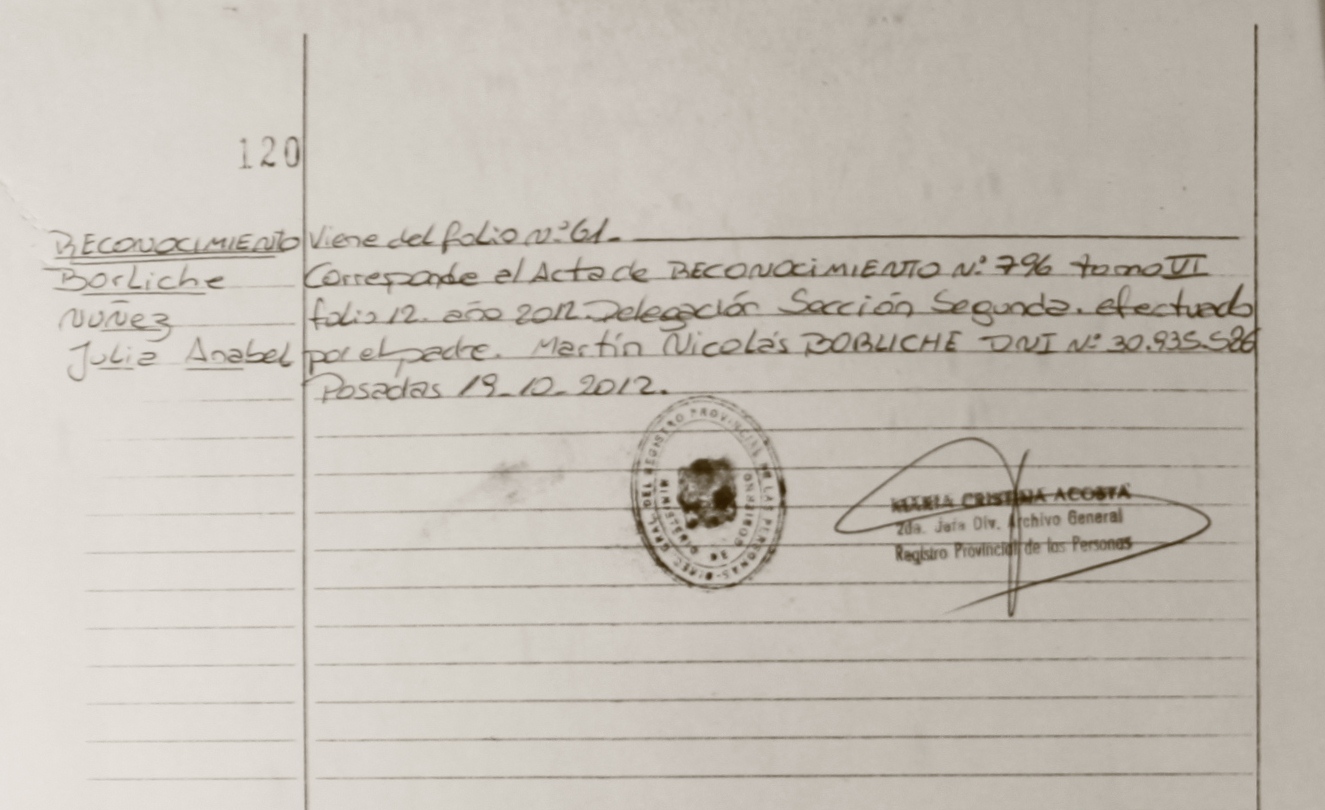 120
RECONOCIMIENTO
Borliche
NUÑEZ
Julia Anabel
Viene del folio N.º 61.
Corresponde al Acta de RECONOCIMIENTO N.º 796 tomo VI
folio 12. año 2012. Delegación Sección Segunda. efectuado
por el padre. Martín Nicolás BORLICHE DNI N.º 30.935.586
Posadas 19-10-2012.
DIREC. GRAL. DEL REGISTRO PROVINCIAL DE LAS PERSONAS
MINISTERIO DE GOBIERNO
MARIA CRISTINA ACOSTA
2da. Jefa Div. Archivo General
Registro Provincial de las Personas